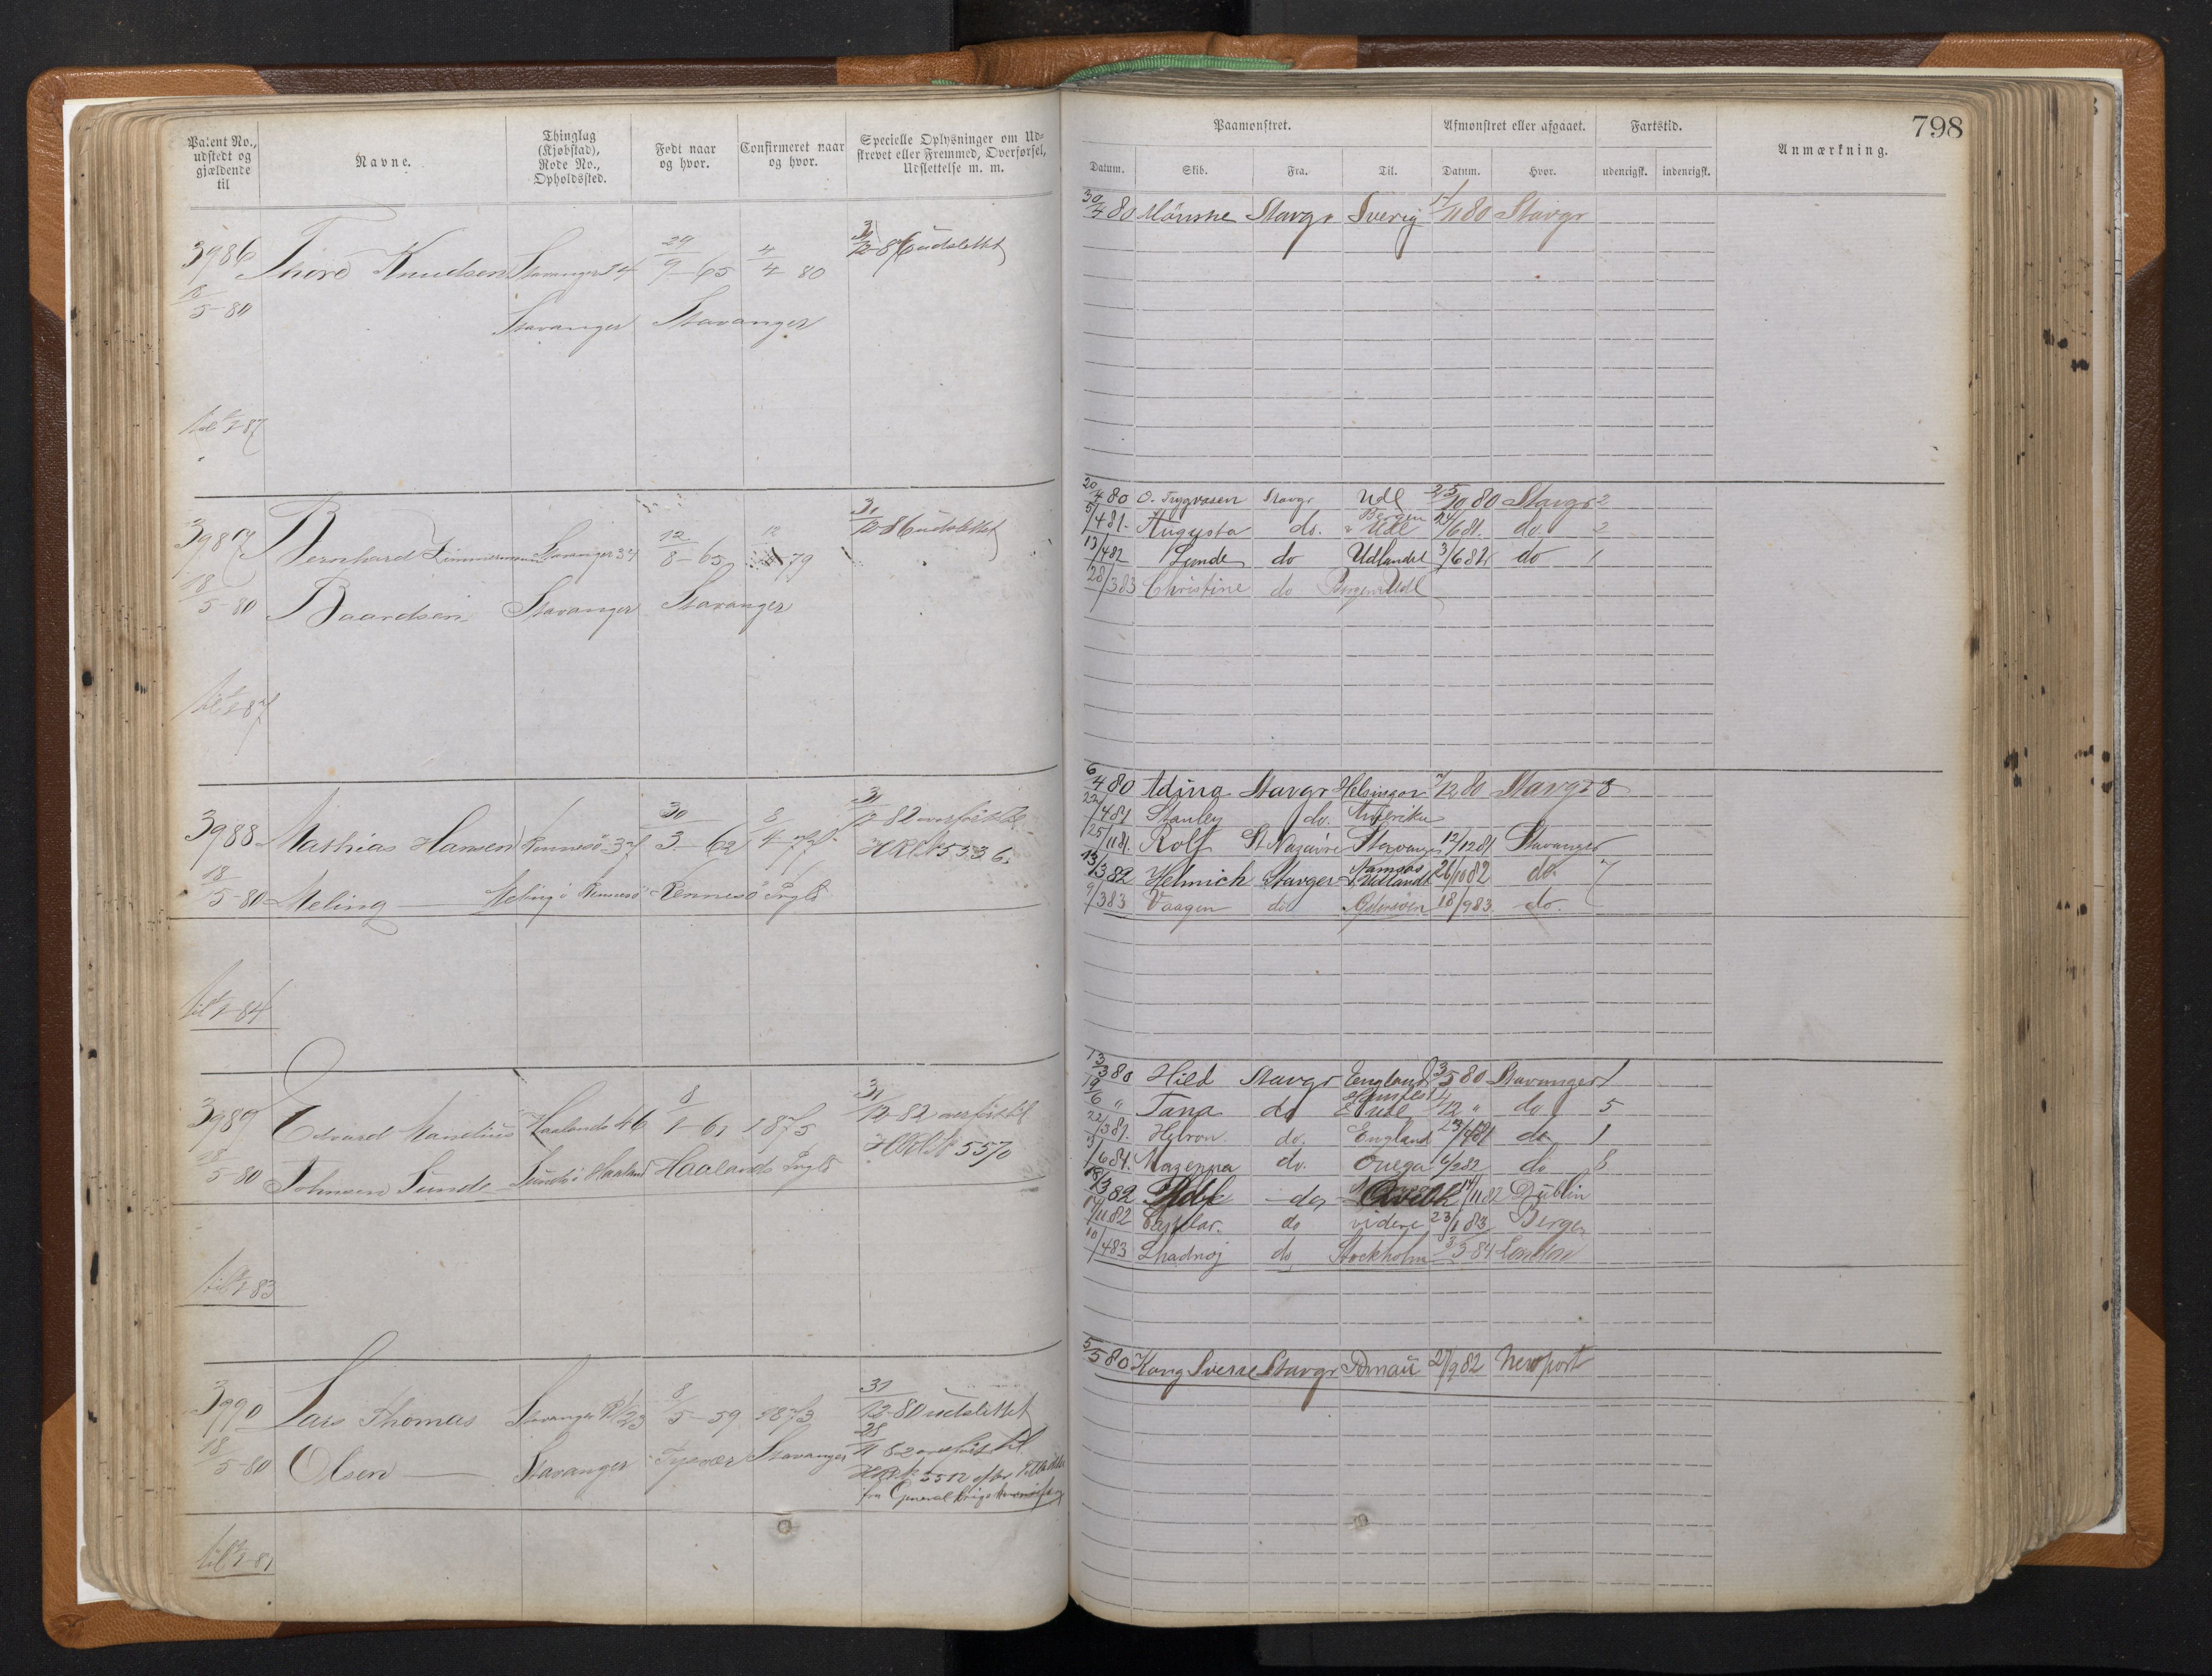 798
Patent No., udstedt og gjældende til
Navne.
Thinglag (Kjøbstad), Rode No., Opholdssted.
Født naar og hvor.
Confirmeret naar og hvor.
Specielle Oplysninger om Udskrevet eller Fremmed, Overførsel, Udslettelse m. m.
Paamønstret.
Afmønstret eller afgaaet.
Fartstid.
Anmærkning.
Datum. Skib. Fra. Til. Datum. Hvor. udenrigsk. indenrigsk.
3986 Knudsen Stavanger 34 29/9-65 4/4 80 31/12-86 udslettet
18/5-80
Stavanger Stavanger
til 1/1-87
30/4 80 Stavgr Sverig 80 Stavgr
3987 Bernhard Zimmermann Stavanger 34 12/8-65 79 31/12-86 udslettet
18/5-80 Baardsen Stavanger Stavanger
til 1/1-87
20/4 80 O. Trygvasen Stavgr Udl 25/10 80 Stavgr 2
5/4 81. Augusta do. Bergen Udl 24/6 81. do. 2
13/4 82 Lunde do Udlandet 3/6 82 do 1
28/3 83 Christine do Bergen Udl
3988 Mathias Hansen Rennesø 37 30/3-62 31/12 82 overført til
HRL No 5336.
18/5-80 Meling Meling i Rennesø Rennesø
til 1/1-84
6/4 80 Adina Stavgr Helsingør 12 80 Stavgr 8
22/4 81 Stanley do. Amerika
25/11 81. Rolf St Nazaire Stavanger 12/12 81 Stavanger
13/3 82 Helmich Stavger Namsos Udlandet 26/10 82 do 7
9/3 83 Vaagen do Østersøen 18/9 83. do.
3989 Edvard Mandius Haaland 46 8/1-61 1875 31/12-82 overført til
HRL No 5570
18/5-80 Johnsen Sunde Sunde i Haaland Haaland
til 1/1-83
13/3 80 Hild Stavgr England 3/5 80 Stavanger 1
19/6 " Tana do Udl 12 " do 5
22/3 81. Hebron. do. England 23/4 81 do 1
6 81. Mazeppa do. Onega 6/2 82 do 8
3 82 do 11 82 Dublin
11 82 do videre 23/1 83 Bergen
10/4 83 do Stockholm 3/3 84 London
3990 Lars Thomas Stavanger 23 8/5-59 1873 31/12-80 udslettet
18/5-80 Olsen Stavanger Tysvær Stavanger 28/11 82 overført til
HRL No 5512 efter
fra General
til 1/1-81
5/5 80 Kong Sverre Stavgr Pernau 27/9 82 Newport